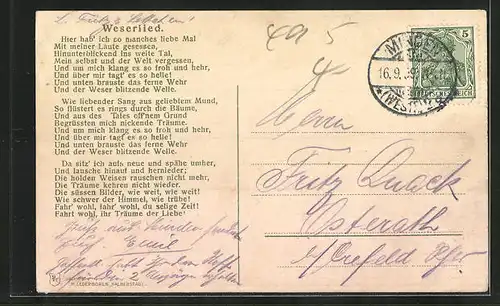 L. Fritz u
Weserlied.
Hier hab' ich so manches liebe Mal
Mit meiner Laute gesessen,
Hinunterblickend ins weite Tal,
Mein selbst und der Welt vergessen,
Und um mich klang es so froh und hehr,
Und über mir tagt' es so helle!
Und unten brauste das ferne Wehr
Und der Weser blitzende Welle.
Wie liebender Sang aus geliebtem Mund,
So flüstert es rings durch die Bäume,
Und aus des Tales off'nem Grund
Begrüssten mich nickende Träume.
Und um mich klang es so froh und hehr,
Und über mir tagt' es so helle!
Und unten brauste das ferne Wehr
Und der Weser blitzende Welle.
Da sitz' ich aufs neue und spähe umher,
Und lausche hinauf und hernieder;
Die holden Weisen rauschen nicht mehr,
Die Träume kehren nicht wieder.
Die süssen Bilder, wie weit, wie weit!
Wie schwer der Himmel, wie trübe!
Fahr' wohl, fahr' wohl, du selige Zeit!
Fahrt wohl, ihr Träume der Liebe!
Emil
5
MINDEN
16.9.
*(WESTF.)
Herrn
Fritz Quack
Osterath
b/Crefeld